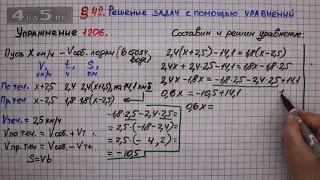 4book
§ 42. Решение задач с помощью уравнений
Упражнение 1206.
Составим и решим уравнение:
Пусть x км/ч – Vсоб. лодки (в стояч. воде)
V, км/ч
t, ч
S, км
По теч. x+2,5 2,4 2,4(x+2,5), на 14,1 км б
Пр. теч x-2,5 1,8 1,8(x-2,5)
Vтеч. = 2,5 км/ч
Vпо теч. = Vсоб. + Vт.
Vпр. теч = Vсоб. - Vт.
S = Vt
-1,8·2,5-2,4·2,5=
=2,5·(-1,8-2,4)=
=2,5·(-4,2)=
=-10,5
2,4(x+2,5)-14,1=1,8(x-2,5)
2,4x+2,4·2,5-14,1=1,8x-1,8·2,5
2,4x-1,8x=-1,8·2,5-2,4·2,5+14,1
0,6x=-10,5+14,1
0,6x=